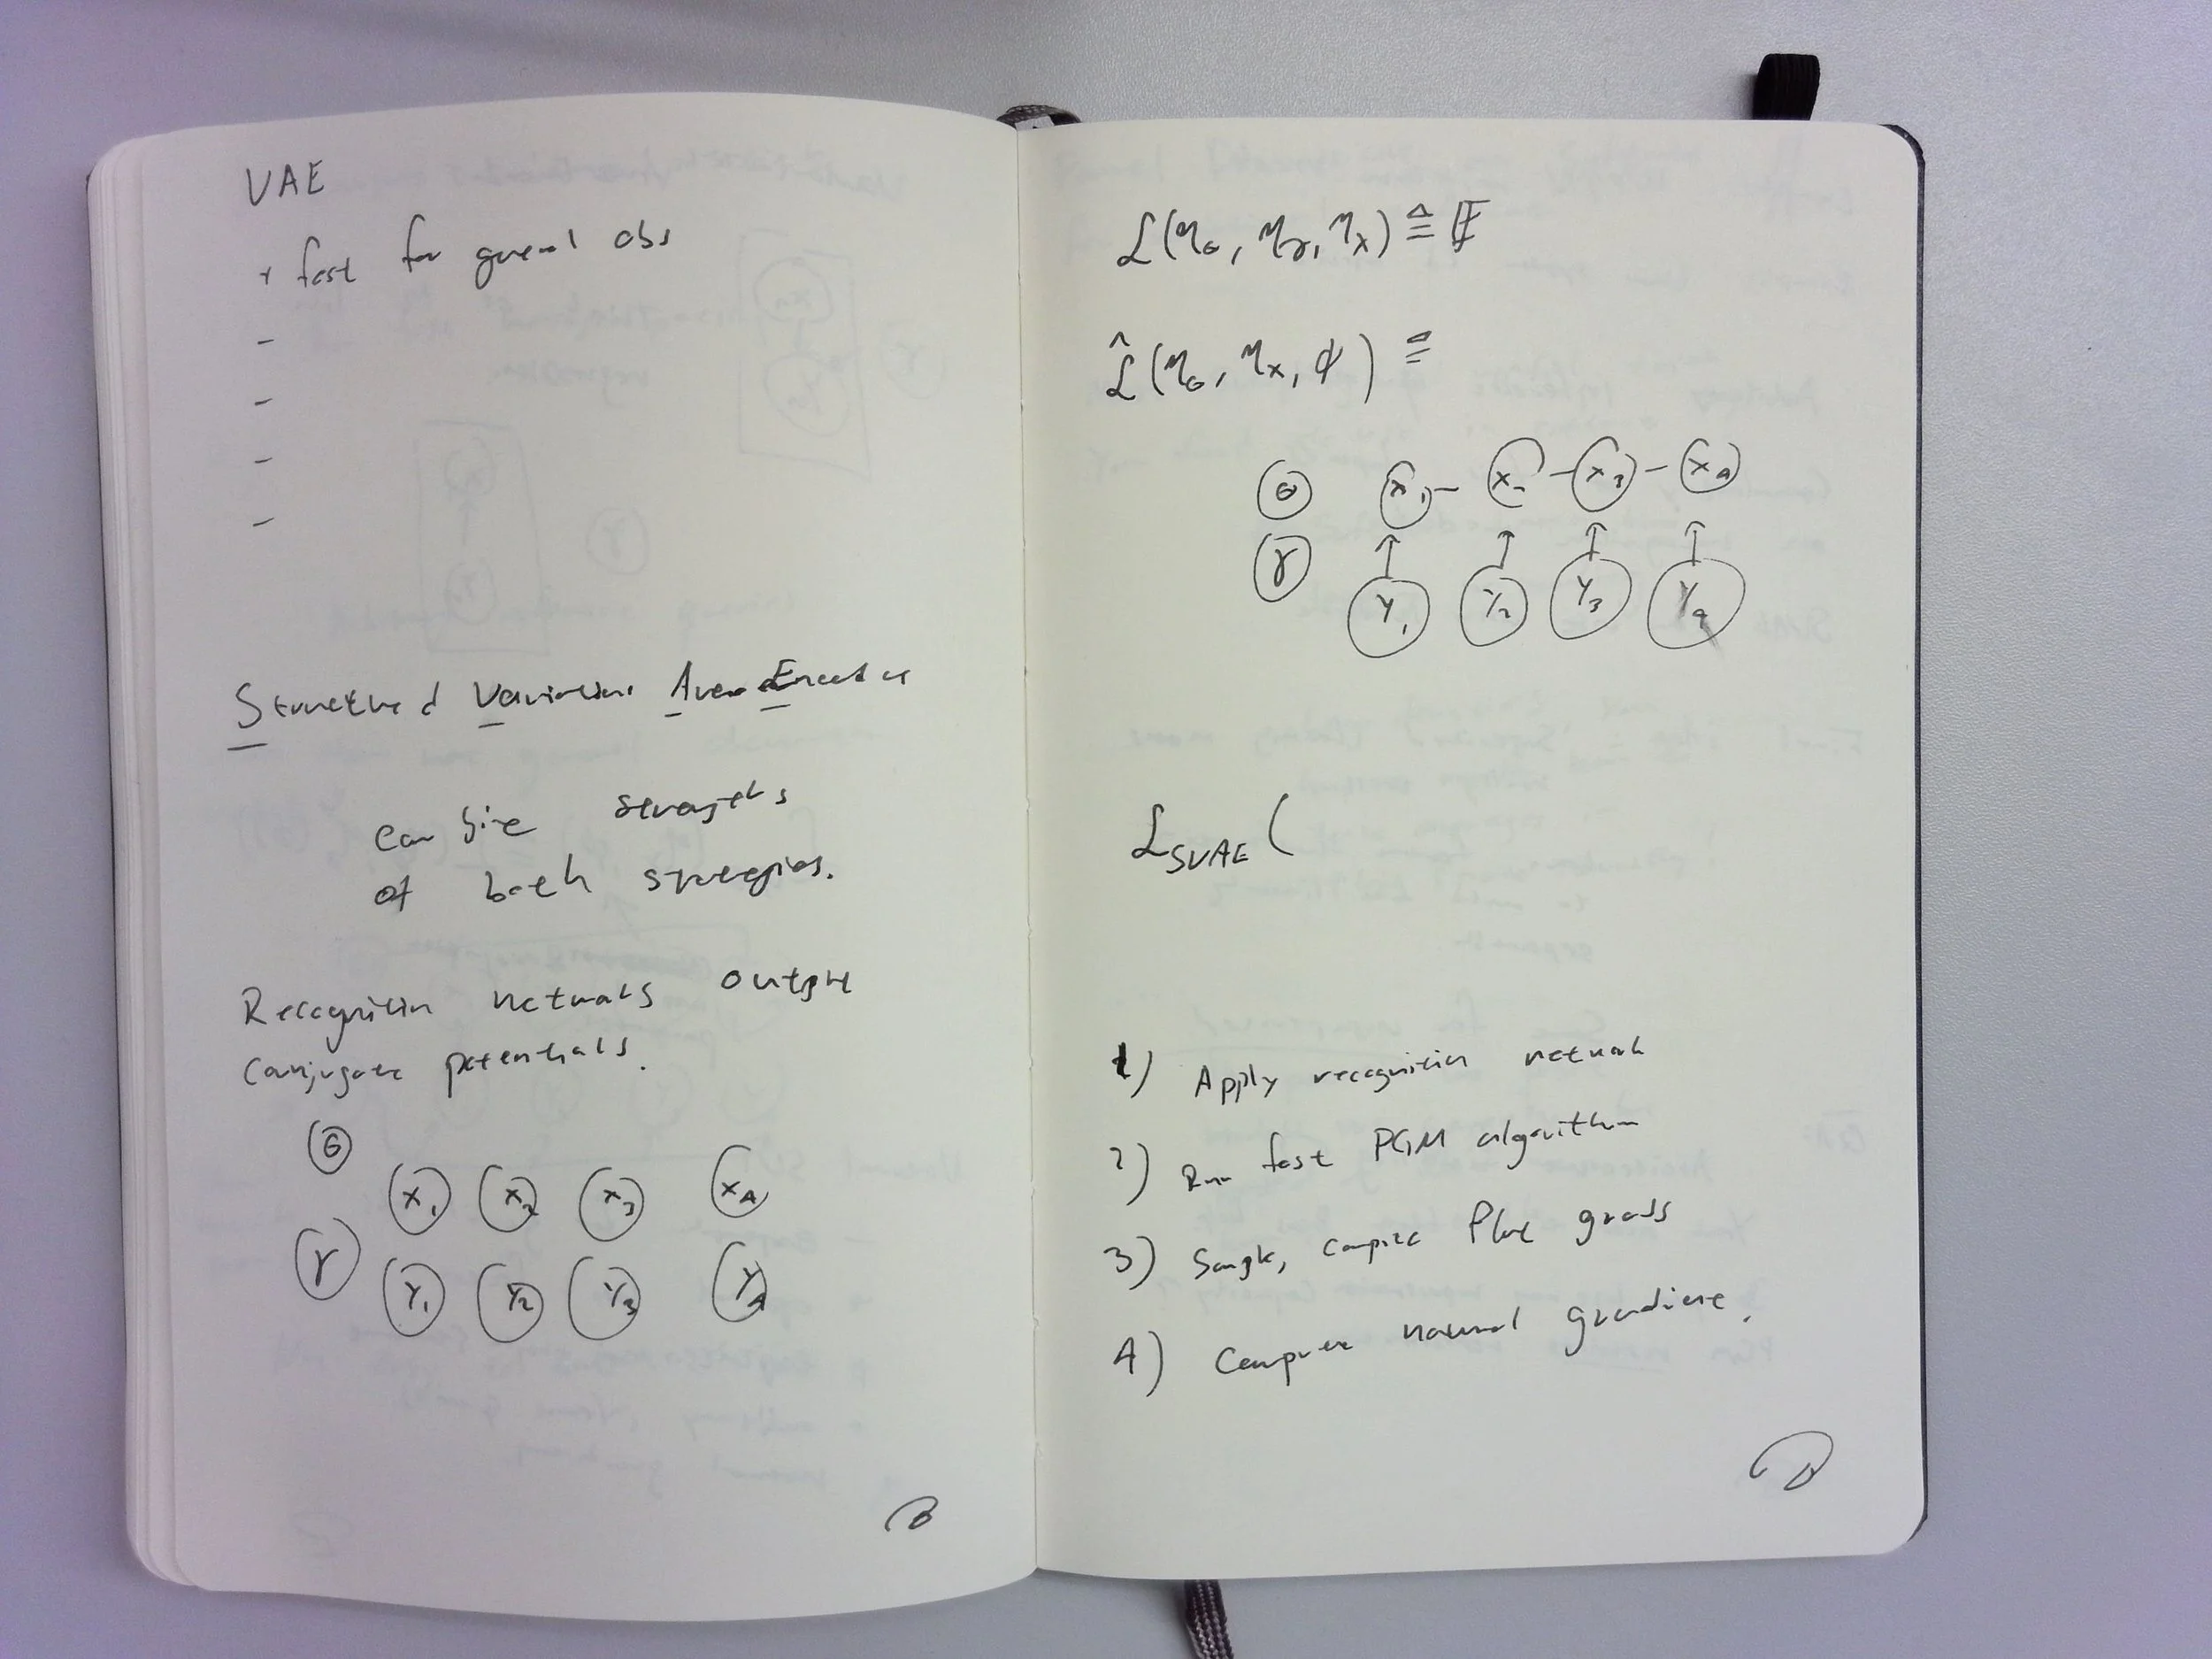 VAE
+ fast for general obs
-
-
-
-
Structured Variational AutoEncoder
combine strengths
of both strategies.
Recognition networks output
conjugate potentials.
θ
x1 x2 x3 x4
γ
y1 y2 y3 y4
ℒ(ηθ, ηγ, ηx) ≜ 𝔼
ℒ̂(ηθ, ηx, φ) ≜
θ x1 - x2 - x3 - x4
↑ ↑ ↑ ↑
γ y1 y2 y3 y4
ℒSVAE (
1) Apply recognition network
2) Run fast PGM algorithm
3) Sample, compute flat grads
4) Compute natural gradient.